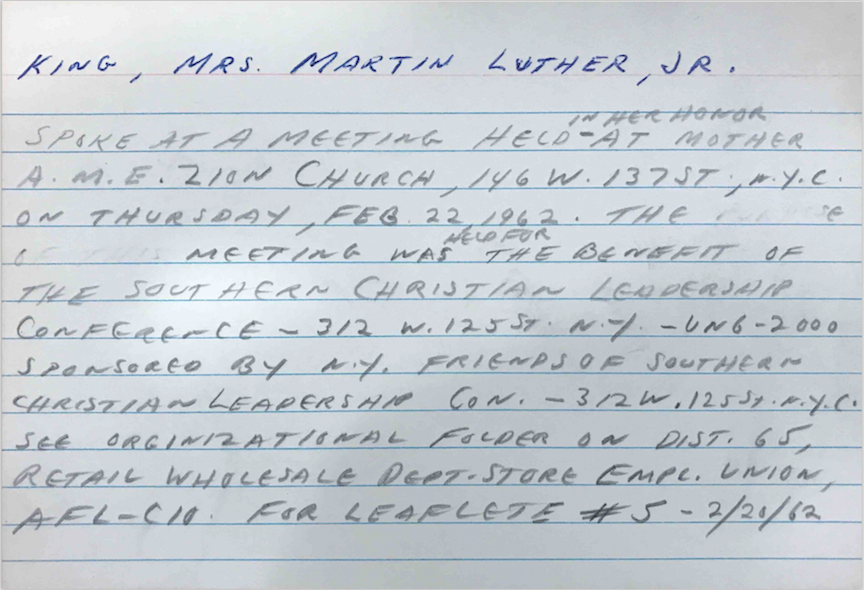 KING, MRS. MARTIN LUTHER, JR.
IN HER HONOR
SPOKE AT A MEETING HELD-AT MOTHER
A.M.E. ZION CHURCH, 146 W. 137 ST., N.Y.C.
ON THURSDAY, FEB. 22, 1962. THE
HELD FOR
MEETING WAS THE BENEFIT OF
THE SOUTHERN CHRISTIAN LEADERSHIP
CONFERENCE - 312 W. 125 ST. N.Y. - UN6-2000
SPONSORED BY N.Y. FRIENDS OF SOUTHERN
CHRISTIAN LEADERSHIP CON. - 312 W. 125 ST. N.Y.C.
SEE ORGINIZATIONAL FOLDER ON DIST. 65,
RETAIL WHOLESALE DEPT-STORE EMPL. UNION,
AFL-CIO. FOR LEAFLETE #5 - 2/20/62